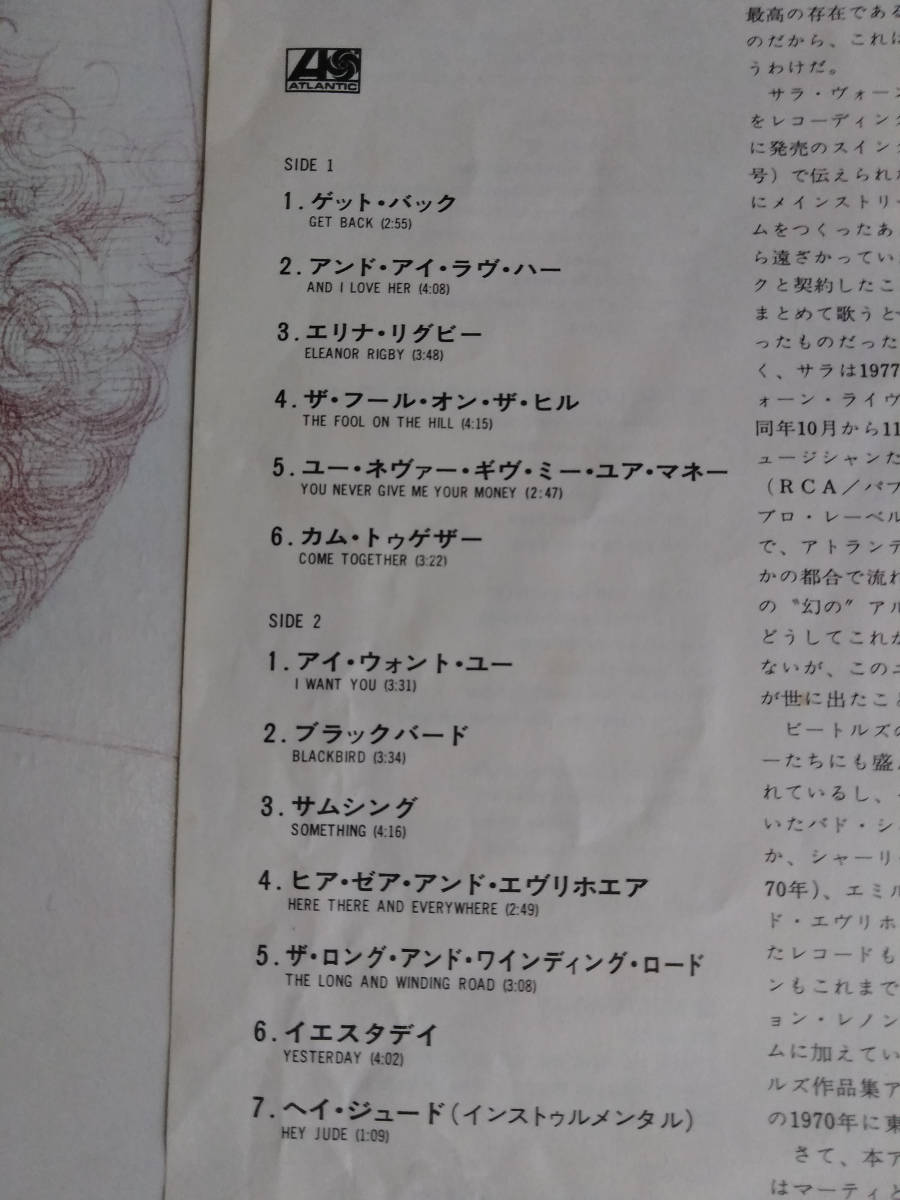 ATLANTIC
SIDE 1
1.ゲット・バック
GET BACK (2:55)
2.アンド・アイ・ラヴ・ハー
AND I LOVE HER (4:08)
3.エリナ・リグビー
ELEANOR RIGBY (3:48)
4.ザ・フール・オン・ザ・ヒル
THE FOOL ON THE HILL (4:15)
5.ユー・ネヴァー・ギヴ・ミー・ユア・マネー
YOU NEVER GIVE ME YOUR MONEY (2:47)
6.カム・トゥゲザー
COME TOGETHER (3:22)
SIDE 2
1.アイ・ウォント・ユー
I WANT YOU (3:31)
2.ブラックバード
BLACKBIRD (3:34)
3.サムシング
SOMETHING (4:16)
4.ヒア・ゼア・アンド・エヴリホエア
HERE THERE AND EVERYWHERE (2:49)
5.ザ・ロング・アンド・ワインディング・ロード
THE LONG AND WINDING ROAD (3:08)
6.イエスタデイ
YESTERDAY (4:02)
7.ヘイ・ジュード(インストゥルメンタル)
HEY JUDE (1:09)
最高の存在である
のだから、これは
うわけだ。
サラ・ヴォーン
をレコーディング
に発売のスイング
号)で伝えられ
にメインストリー
ムをつくったあ
ら遠ざかってい
クと契約したこ
まとめて歌うと
ったものだった
く、サラは1977
ォーン・ライヴ
同年10月から11
ュージシャンた
(RCA/パブ
ブロ・レーベル
で、アトランテ
かの都合で流れ
の〝幻の〟アル
どうしてこれが
ないが、このニ
が世に出たこと
ビートルズの
ーたちにも盛ん
れているし、
いたバド・シ
か、シャーリー
70年)、エミル
ド・エヴリホ
たレコードも
ンもこれまで
ョン・レノン
ムに加えてい
ルズ作品集ア
の1970年に東
さて、本ア
はマーティと